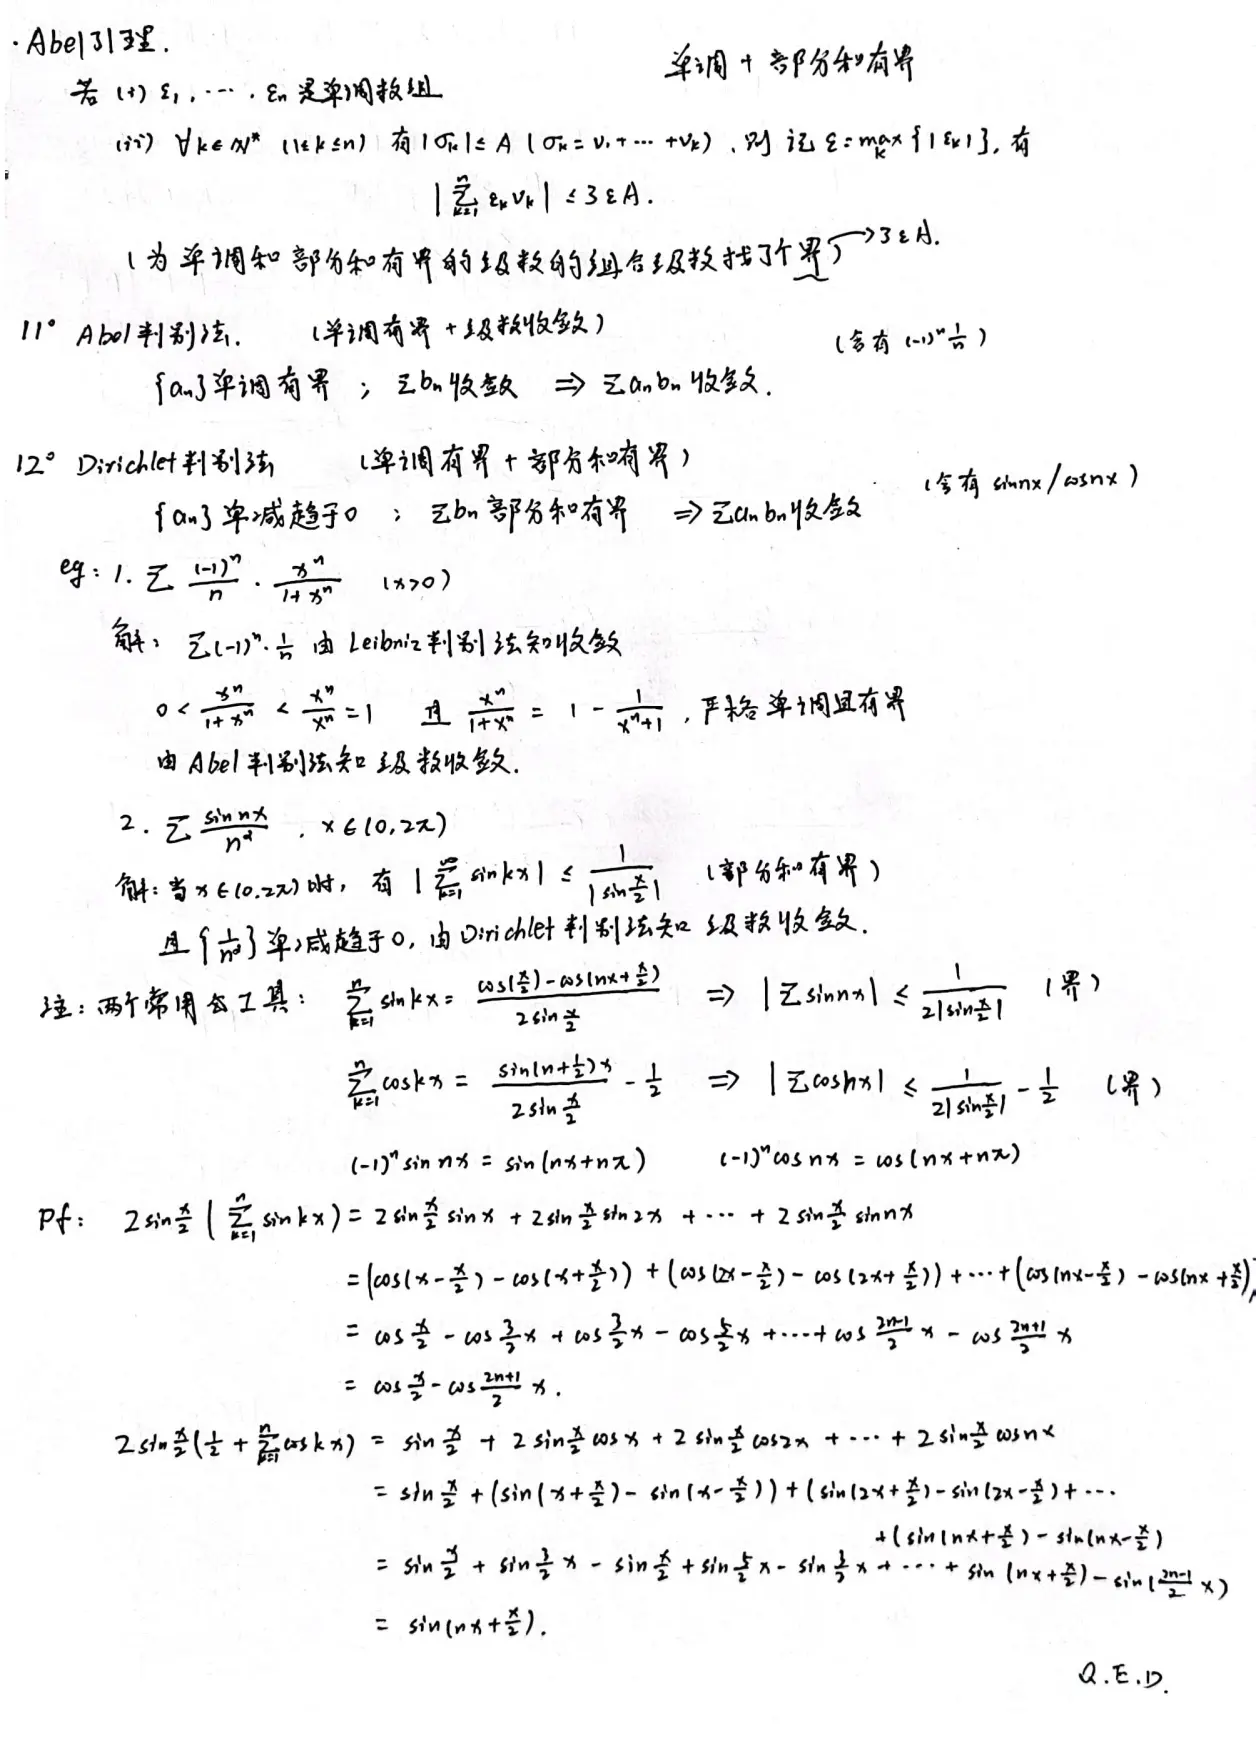 · Abel引理.
单调 + 部分和有界
若 (i) ε₁, ···, εₙ 是单调数组
(ii) ∀k∈N* (1≤k≤n) 有 |σₖ| ≤ A (σₖ = v₁ + ··· + vₖ), 则 记 ε = max_k {|εₖ|}, 有
|∑_{k=1}^{n} εₖvₖ| ≤ 3εA.
(为单调和部分和有界的级数的组合级数找了个界) → 3εA.
11° Abel判别法. (单调有界 + 级数收敛) (含有 (-1)ⁿ 1/n)
{aₙ}单调有界 ; ∑bₙ收敛 ⇒ ∑aₙbₙ收敛.
12° Dirichlet判别法 (单调有界 + 部分和有界) (含有 sinnx/cosnx)
{aₙ}单减趋于0 ; ∑bₙ部分和有界 ⇒ ∑aₙbₙ收敛
eg: 1. ∑ (-1)ⁿ/n · xⁿ/(1+xⁿ) (x>0)
解: ∑(-1)ⁿ · 1/n 由 Leibniz判别法知收敛
0 < xⁿ/(1+xⁿ) < xⁿ/xⁿ = 1 且 xⁿ/(1+xⁿ) = 1 - 1/(xⁿ+1), 严格单调且有界
由Abel判别法知级数收敛.
2. ∑ sin nx/n^α , x∈(0,2π)
解: 当x∈(0,2π)时, 有 |∑_{k=1}^{n} sinkx| ≤ 1/|sin x/2| (部分和有界)
且{1/n^α}单减趋于0, 由Dirichlet判别法知 级数收敛.
注: 两个常用工具: ∑_{k=1}^{n} sinkx = (cos(x/2) - cos(nx+x/2))/(2sin x/2) ⇒ |∑sinnx| ≤ 1/(2|sin x/2|) (界)
∑_{k=1}^{n} coskx = sin(n+1/2)x/(2sin x/2) - 1/2 ⇒ |∑cosnx| ≤ 1/(2|sin x/2|) - 1/2 (界)
(-1)ⁿ sin nx = sin(nx+nπ) (-1)ⁿ cos nx = cos(nx+nπ)
Pf: 2sin x/2 (∑_{k=1}^{n} sinkx) = 2sin x/2 sinx + 2sin x/2 sin2x + ··· + 2sin x/2 sinnx
= (cos(x-x/2) - cos(x+x/2)) + (cos(2x-x/2) - cos(2x+x/2)) + ··· + (cos(nx-x/2) - cos(nx+x/2))
= cos x/2 - cos 3/2 x + cos 3/2 x - cos 5/2 x + ··· + cos (2n-1)/2 x - cos (2n+1)/2 x
= cos x/2 - cos (2n+1)/2 x.
2sin x/2 (1/2 + ∑_{k=1}^{n} coskx) = sin x/2 + 2sin x/2 cosx + 2sin x/2 cos2x + ··· + 2sin x/2 cosnx
= sin x/2 + (sin(x+x/2) - sin(x-x/2)) + (sin(2x+x/2) - sin(2x-x/2) + ···
+ (sin(nx+x/2) - sin(nx-x/2)
= sin x/2 + sin 3/2 x - sin x/2 + sin 5/2 x - sin 3/2 x + ··· + sin(nx+x/2) - sin((2n-1)/2 x)
= sin(nx+x/2).
Q.E.D.